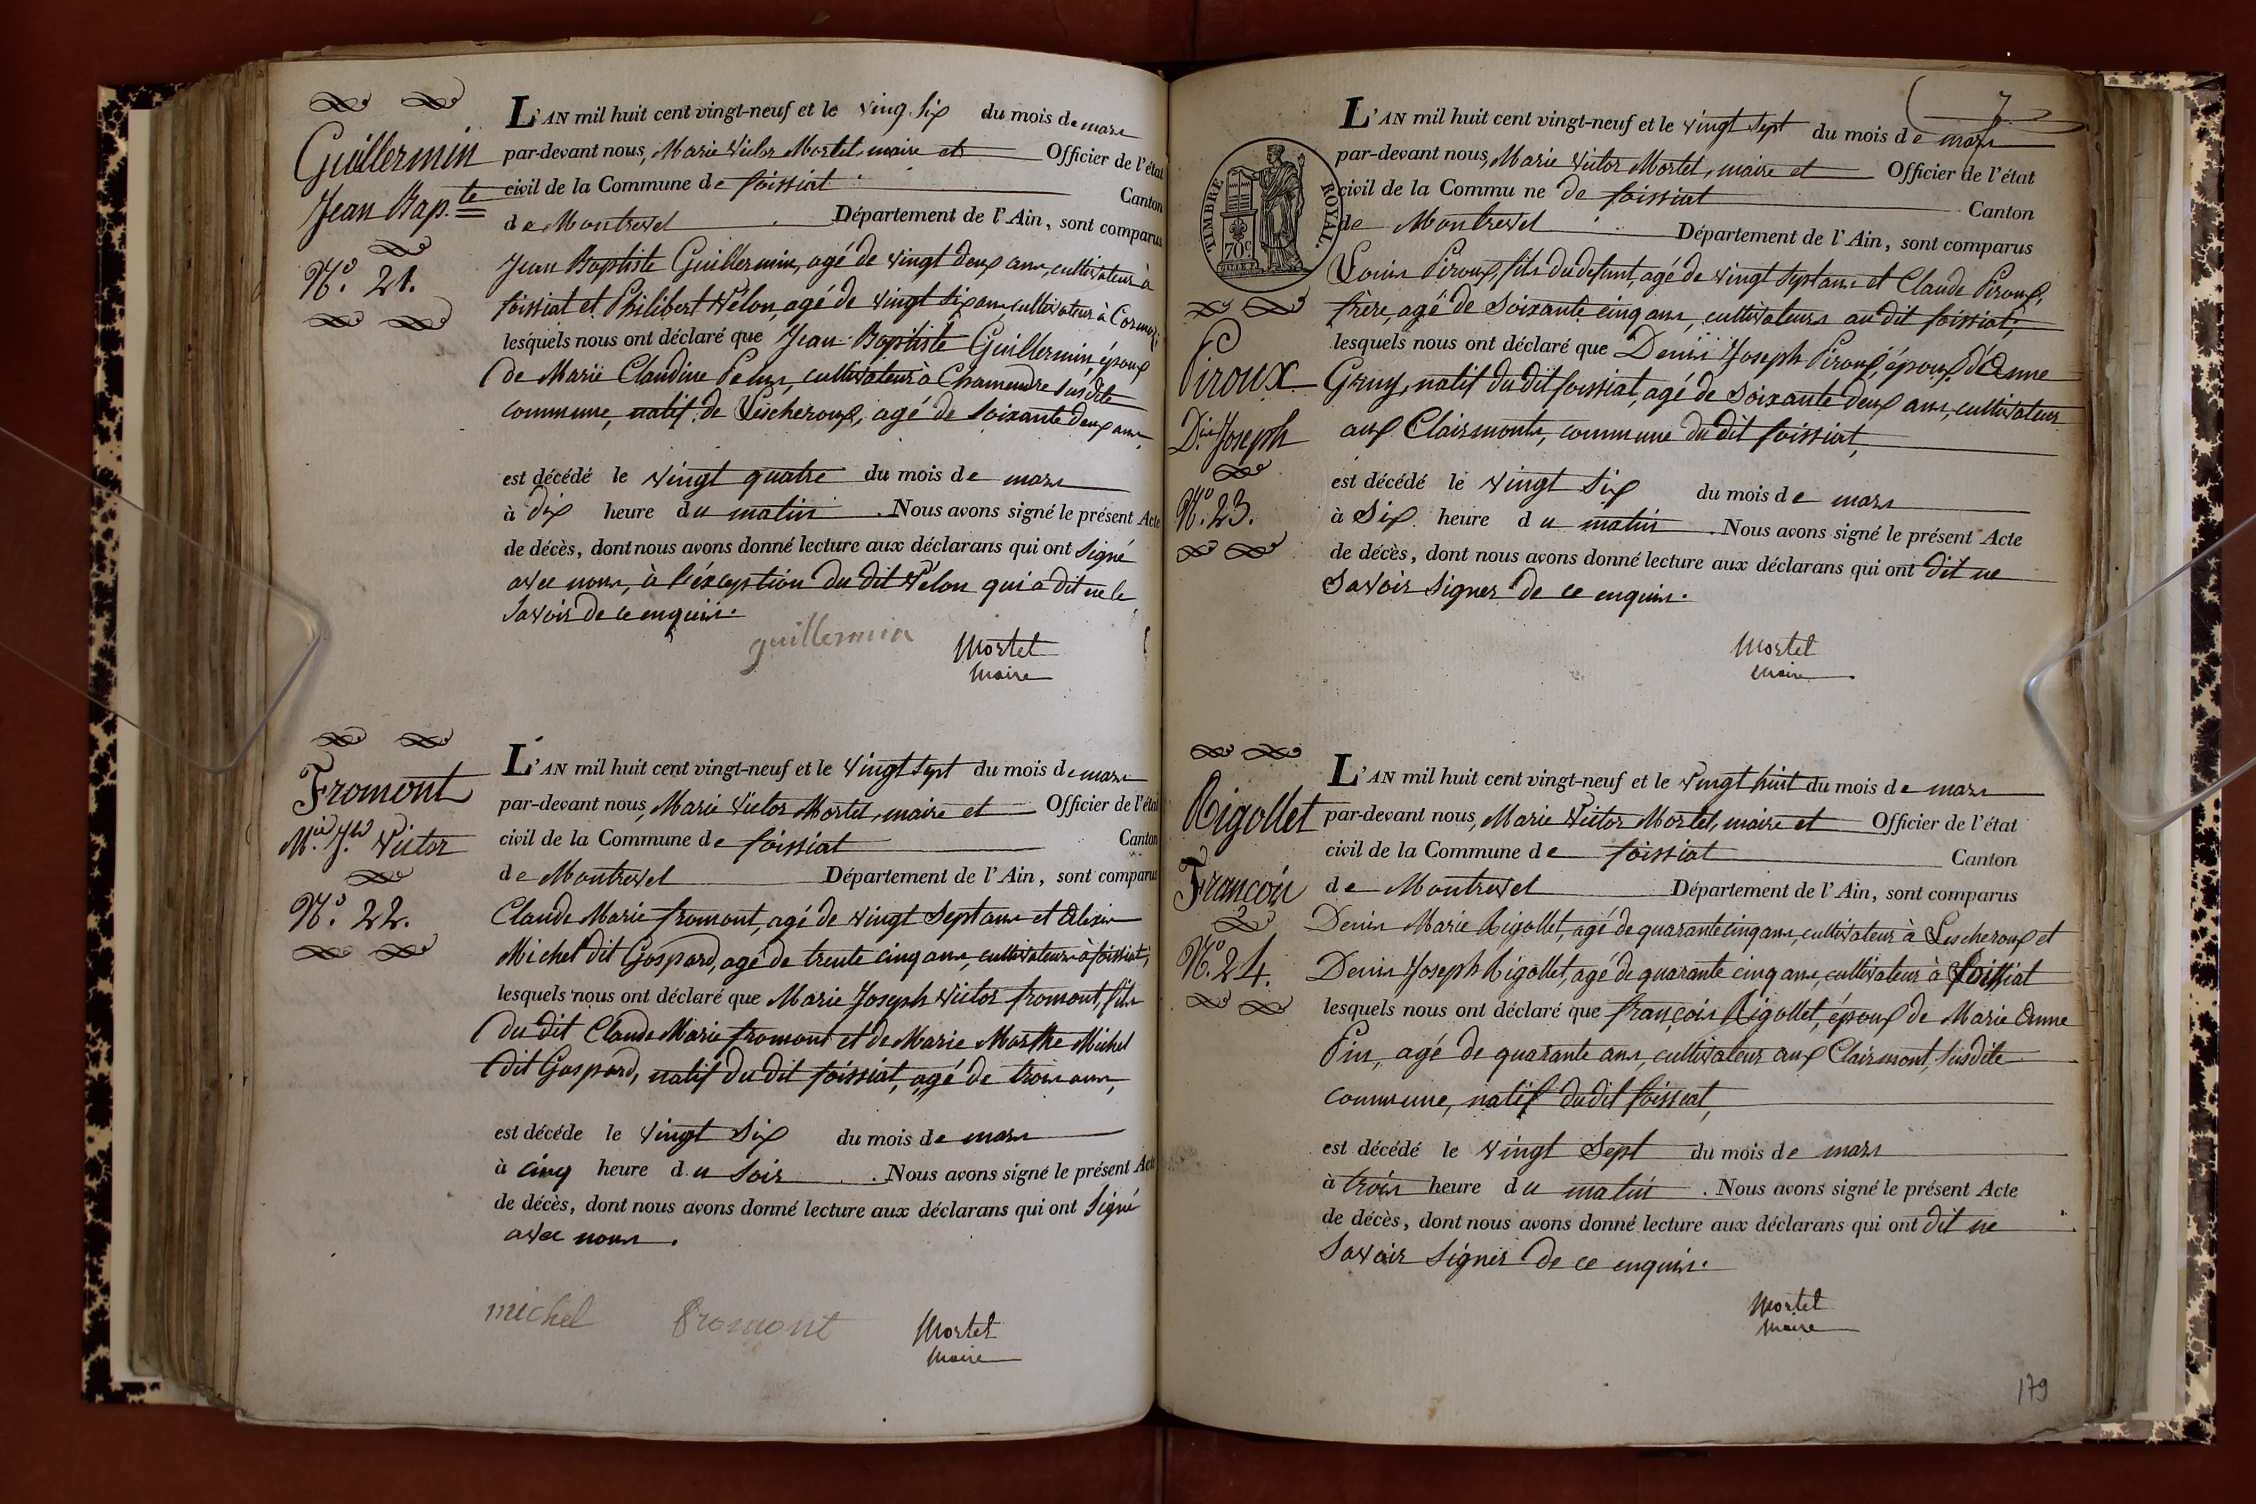 Guillermin
Jean Bap.te
N.o 21.
L'AN mil huit cent vingt-neuf et le ving. six du mois de mars
par-devant nous, Marie Victor Mortel, maire et Officier de l'état
civil de la Commune de foissiat Canton
de Montrevel Département de l'Ain, sont comparus
Jean Baptiste Guillermin, agé de vingt deux ans, cultivateur à
foissiat et Philibert Vélon, agé de vingt six ans, cultivateur à
lesquels nous ont déclaré que Jean Baptiste Guillermin, époux
de Marie Claudine cultivateur à Chamendre susdite
commune, natif de Léscheroux, agé de soixante deux ans
est décédé le vingt quatre du mois de mars
à dix heure du matin. Nous avons signé le présent Acte
de décès, dont nous avons donné lecture aux déclarans qui ont signé
avec nous, à l'éxception du dit Vélon qui a dit ne le
savoir de ce enquis.
guillermin Mortel
Maire
Fromont
M.ie J.h Victor
N.o 22.
L'AN mil huit cent vingt-neuf et le vingt sept du mois de mars
par-devant nous, Marie Victor Mortel, maire et Officier de l'état
civil de la Commune de foissiat Canton
de Montrevel Département de l'Ain, sont comparus
Claude Marie fromont, agé de vingt sept ans et Alexis
Michel dit Gaspard, agé de trente cinq ans, cultivateurs à foissiat,
lesquels nous ont déclaré que Marie Joseph Victor fromont, fils
du dit Claude Marie fromont et de Marie Marthe Michel
dit Gaspard, natif du dit foissiat, agé de trois ans,
est décédé le vingt six du mois de mars
à cinq heure du soir. Nous avons signé le présent Acte
de décès, dont nous avons donné lecture aux déclarans qui ont signé
avec nous.
michel fromont Mortel
Maire
7
TIMBRE ROYAL.
70c
Piroux
D.is Joseph
N.o 23.
L'AN mil huit cent vingt-neuf et le vingt sept du mois de mars
par-devant nous, Marie Victor Mortel, maire et Officier de l'état
civil de la Commune de foissiat Canton
de Montrevel Département de l'Ain, sont comparus
Louis Piroux, fils du defunt, agé de vingt sept ans et Claude Piroux,
frère, agé de soixante cinq ans, cultivateurs au dit foissiat,
lesquels nous ont déclaré que Denis Joseph Piroux, époux d'Anne
natif du dit foissiat, agé de soixante deux ans, cultivateur
aux Clairmonts, commune du dit foissiat,
est décédé le vingt six du mois de mars
à six heure du matin. Nous avons signé le présent Acte
de décès, dont nous avons donné lecture aux déclarans qui ont dit ne
savoir signer de ce enquis.
Mortel
Maire
Rigollet
François
N.o 24.
L'AN mil huit cent vingt-neuf et le vingt huit du mois de mars
par-devant nous, Marie Victor Mortel, maire et Officier de l'état
civil de la Commune de foissiat Canton
de Montrevel Département de l'Ain, sont comparus
Denis Marie Rigollet, agé de quarante cinq ans, cultivateur à Lescheroux et
Denis Joseph Rigollet, agé de quarante cinq ans, cultivateur à foissiat
lesquels nous ont déclaré que françois Rigollet, époux de Marie Anne
Pin, agé de quarante ans, cultivateur aux Clairmont, susdite
commune, natif du dit foissiat,
est décédé le vingt sept du mois de mars
à trois heure du matin. Nous avons signé le présent Acte
de décès, dont nous avons donné lecture aux déclarans qui ont dit ne
savoir signer de ce enquis.
Mortel
Maire
179